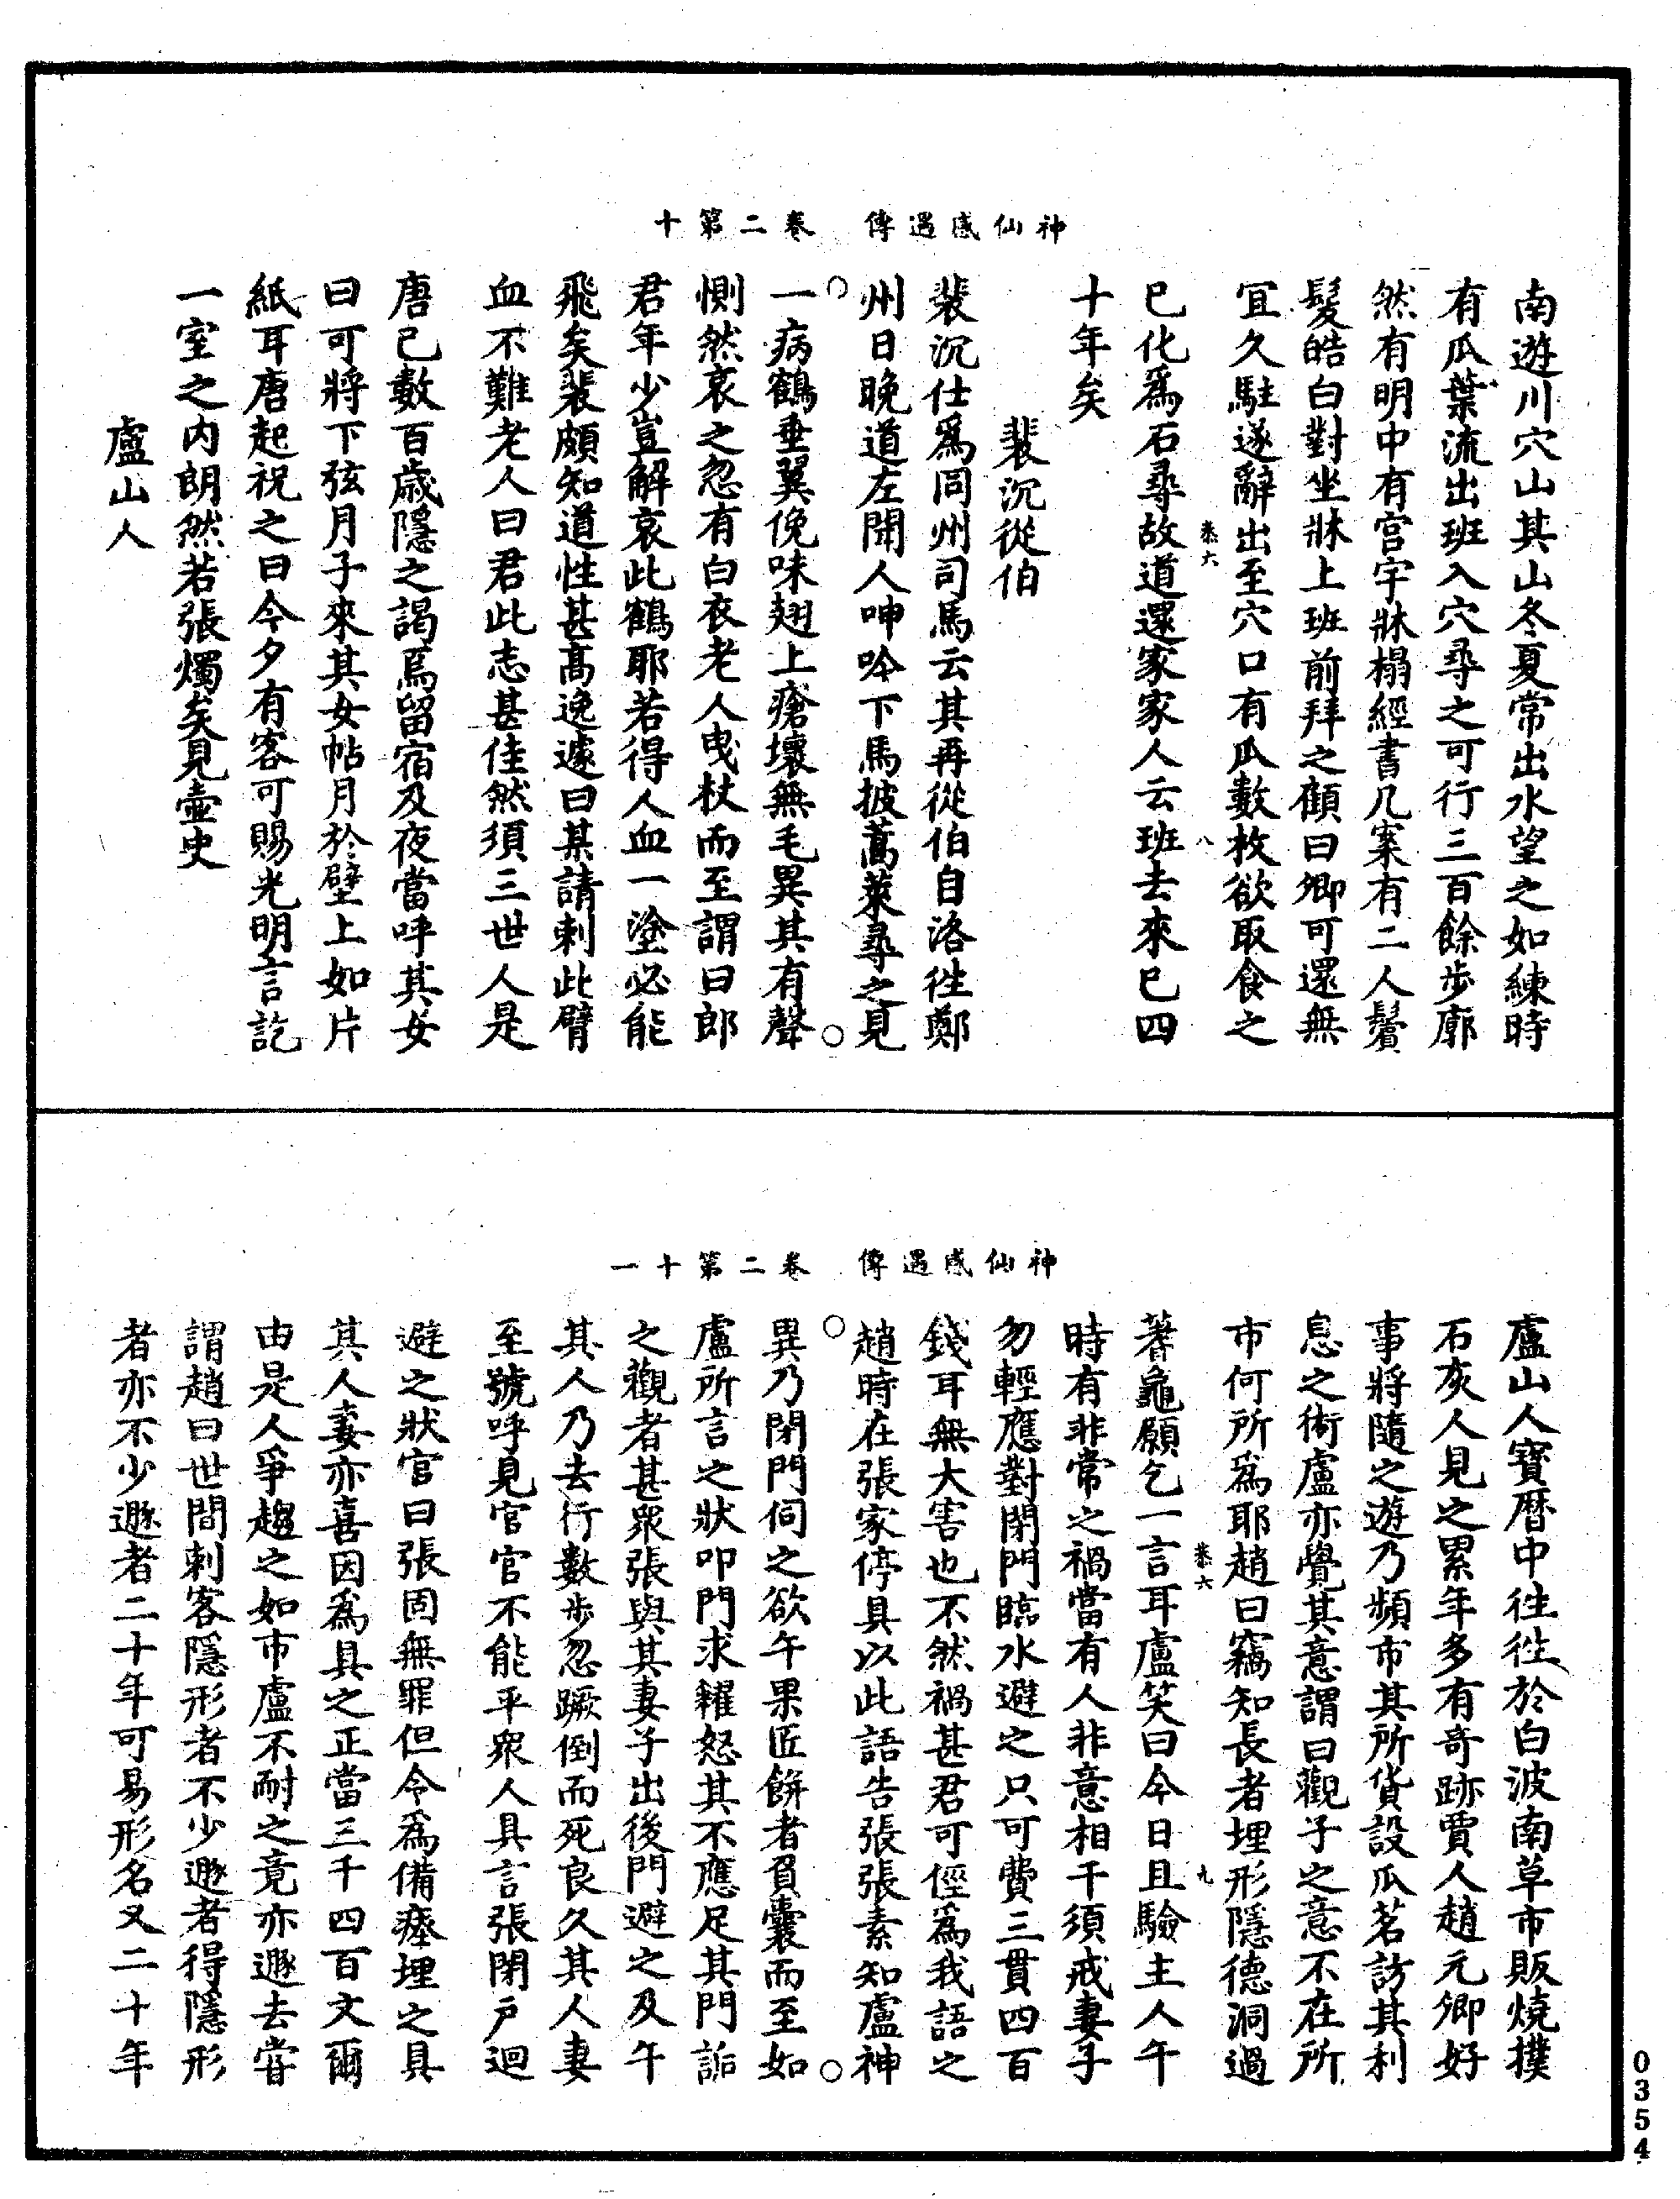 神仙感遇傳　卷二第十
南遊川穴山其山冬夏常出水望之如練時
有瓜葉流出班入穴尋之可行三百餘步廓
然有明中有宫宇牀榻經書几案有二人鬢
髮皓白對坐牀上班前拜之顧曰卿可還無
宜久駐遂辭出至穴口有瓜數枚欲取食之
卷六　八
已化爲石尋故道還家家人云班去來已四
十年矣
裴沉從伯
裴沉仕爲同州司馬云其再從伯自洛徃鄭
州日晚道左聞人呻吟下馬披蒿萊尋之見
一病鶴垂翼俛咮翅上瘡壞無毛異其有聲
惻然哀之忽有白衣老人曳杖而至謂曰郎
君年少豈解哀此鶴耶若得人血一塗必能
飛矣裴頗知道性甚高逸遽曰某請刺此臂
血不難老人曰君此志甚佳然須三世人是
唐已數百歲隱之謁焉留宿及夜當呼其女
曰可將下弦月子來其女帖月於壁上如片
紙耳唐起祝之曰今夕有客可賜光明言訖
一室之内朗然若張燭矣見壺史
盧山人
神仙感遇傳　卷二第十一
盧山人寶曆中徃徃於白波南草市販燒撲
石灰人見之累年多有奇跡賈人趙元卿好
事將隨之遊乃頻市其所貨設瓜茗訪其利
息之術盧亦覺其意謂曰觀子之意不在所
市何所爲耶趙曰竊知長者埋形隱德洞過
卷六　九
蓍龜願乞一言耳盧笑曰今日且驗主人午
時有非常之禍當有人非意相干須戒妻子
勿輕應對閉門臨水避之只可費三貫四百
錢耳無大害也不然禍甚君可徑爲我語之
趙時在張家停具以此語告張張素知盧神
異乃閉門伺之欲午果匠餅者負囊而至如
盧所言之狀叩門求糴怒其不應足其門詬
之觀者甚眾張與其妻子出後門避之及午
其人乃去行數步忽蹶倒而死良久其人妻
至號呼見官官不能平眾人具言張閉戶迴
避之狀官曰張固無罪但令爲備瘞埋之具
其人妻亦喜因爲具之正當三千四百文爾
由是人爭趨之如市盧不耐之竟亦遯去嘗
謂趙曰世間刺客隱形者不少遯者得隱形
者亦不少遯者二十年可易形名又二十年
0354